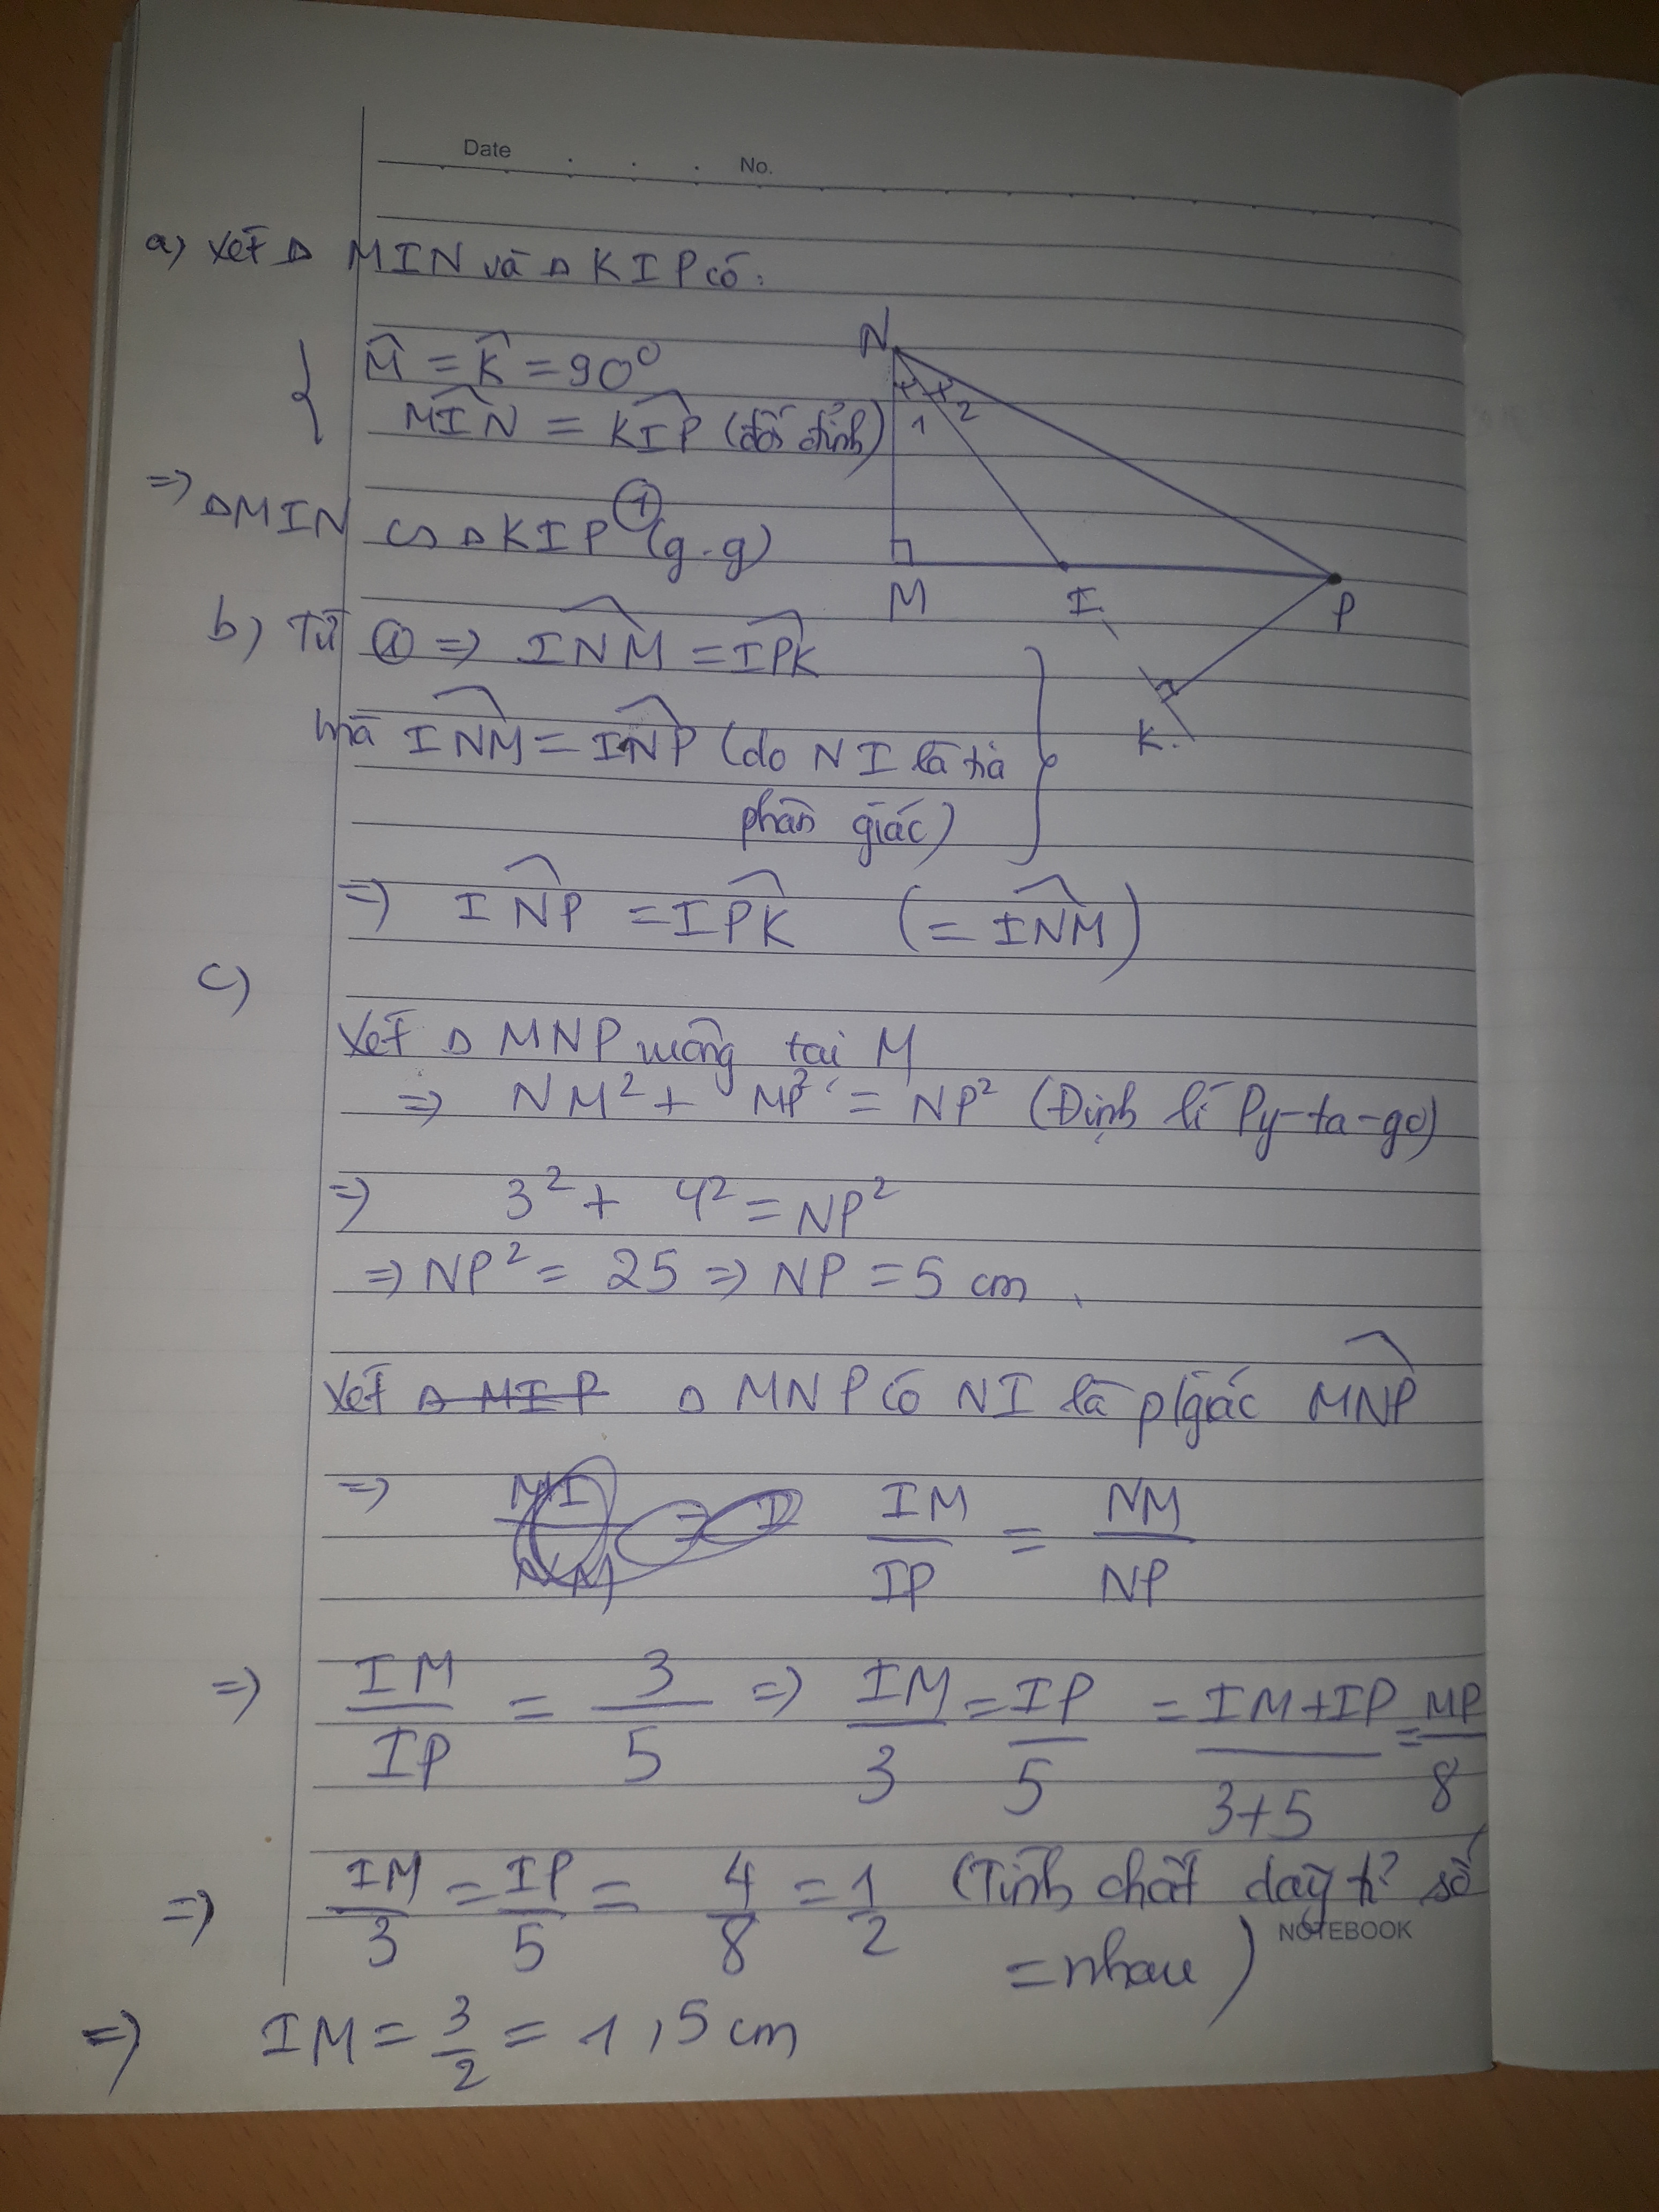 Date . . . No.
a) Xét Δ MIN và Δ KIP có:
M̂ = K̂ = 90°
MIN̂ = KIP̂ (đối đỉnh)
=> ΔMIN ∽ ΔKIP ① (g.g)
N
1 2
M I P
K
b) Từ ① => INM̂ = IPK̂
mà INM̂ = INP̂ (do NI là tia
phân giác)
=> INP̂ = IPK̂ (= INM̂)
c)
Xét Δ MNP vuông tại M
=> NM² + MP² = NP² (Định lí Py-ta-go)
=> 3² + 4² = NP²
=> NP² = 25 => NP = 5 cm.
Xét Δ MIP Δ MNP có NI là p/giác MNP̂
=> IM/IP = NM/NP
=> IM/IP = 3/5 => IM/3 = IP/5 = IM+IP/3+5 = MP/8
=> IM/3 = IP/5 = 4/8 = 1/2 (Tính chất dãy tỉ số
= nhau)
NOTEBOOK
=> IM = 3/2 = 1,5 cm